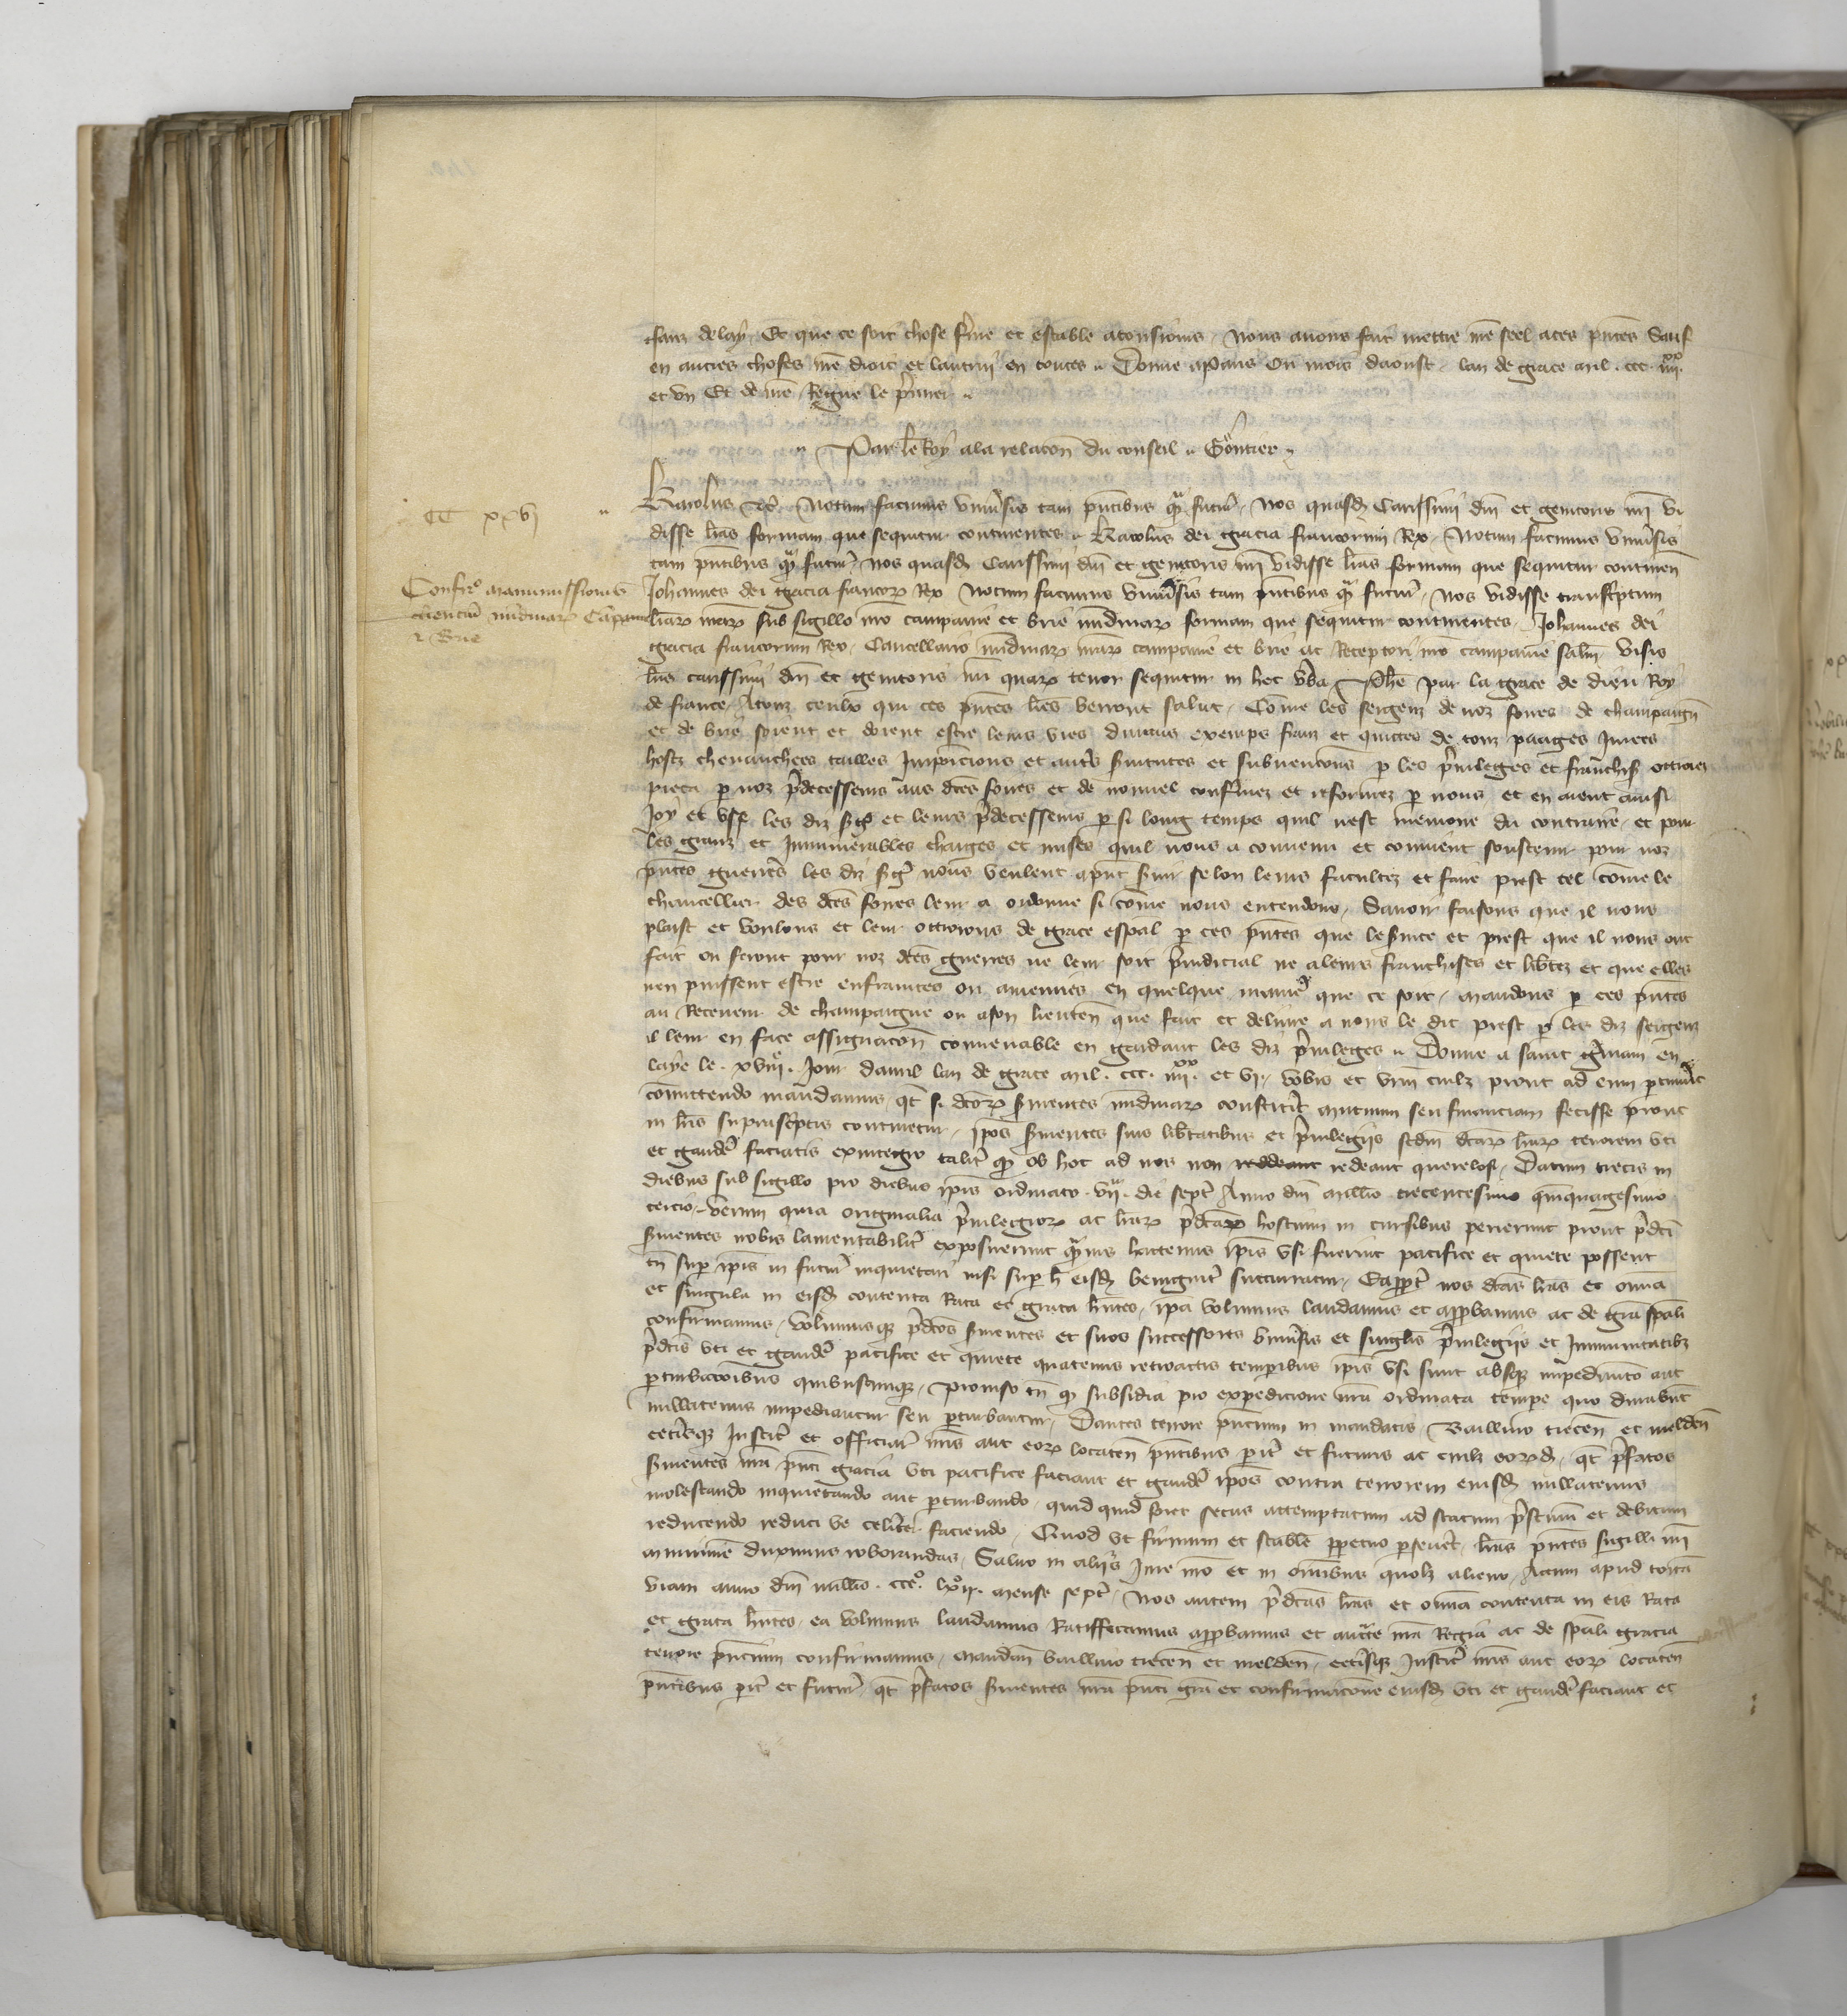 sanz delay. Et que ce soit chose ferme et estable a tousiours. Nous auons fait mettre nre seel a ces pntes Sauf
en autres choses nre droit et lautruy en toutes. Donne a Paris ou mois daoust. lan de grace mil. ccc. iiii xx.
et vn Et de nre Regne le premier.
Par le Roy a la relacon du conseil. Gontier.
CC xxvj
Karolus &c. Notum facimus vniuersis tam pntibus q futur. Nos quasd Carissimi dni et genitoris nri vi
disse lras formam que sequitur continentes. Karolus dei gracia francorum Rex. Notum facimus vniuersis
tam pntibus q futur. Nos quasd Carissimi dni et genitoris nri vidisse lras formam que sequitur continen
Confir manumissionis
seruientum nundinar Campanie
et Brie
Johannes dei gracia francor Rex Notum facimus vniuersis tam pntibus q futur. Nos vidisse transcriptum
lrar nrar sub sigillo nro campanie et brie nundinar formam que sequitur continentes. Johannes dei
gracia francorum Rex. Cancellario nundinar nrar campanie et brie ac Receptori nro campanie saltm Visis
lris carissimi dni et genitoris nri quar tenor sequitur in hec vba. Phe par la grace de dieu Roy
de france. A touz ceulx qui ces pntes lres verront salut. Come les sergenz de noz foires de champaign
et de brie soient et doient estre leurs vies durans exemps frans et quittes de touz paages Jurees
hostz cheuauchees tailles Jmposicions et autres seruitutes et subuencons p les preuileges et franchis ottroies
pieca p noz predecesseurs aus dtes foires et de nouuel confermez et reformez p nous et en aient ainsi
Joy et vse les diz sergens et leurs predecesseurs p si long temps quil nest memoire du contraire. et pour
les granz et Jnnumerables charges et mises quil nous a conuenu et conuient soustenir pour noz
pntes guerres les diz serg nous veulent a pnt seruir selon leurs facultez et faire prest tel come le
chancellier des dtes foires leur a ordonne si come nous entendons. Sauoir faisons que il nous
plaist et voulons et leur ottroions de grace espal p ces pntes que le seruice et prest que il nous ont
fait ou feront pour noz dtes guerres ne leur soit preiudicial ne a leurs franchises et libtez et que elles
nen puissent estre enfraintes ou amenries en quelque maniere que ce soit. Mandons p ces pntes
au Receueur de champaigne ou a son lieuten que fait et deliure a nous le dit prest p les diz sergenz
il leur en face assignacon conuenable en gardant les diz preuileges. Donne a saint germain en
laye le. xviii. Jour dauril lan de grace mil. ccc. et vj. vobis et vrm cuilz prout ad eum ptinuerit
comittendo mandamus. qt si dcor seruientes nundinar constiterit mutuum seu financiam fecisse prout
in lris suprascriptis continetur. ipos seruientes suis libtatibus et preuilegiis scdm dtar lrar tenorem vti
et gaudere faciatis ex integro taliter q ob hoc ad nos non reddeant redeant querelosi. Datum trecis in
diebus sub sigillo pro diebus ipis ordinato. vij. die sept Anno dni millio trecentesimo quinquagesimo
tercio. Verum quia originalia preuilegior ac lrar predictar hostium in cursibus perierunt prout predcti
seruientes nobis lamentabiliter exposuerunt quamuis hactenus ipis vsi fuerint pacifice et quiete possent
tn sup ipis in futur inquietari nisi sup h eisd benigniter succurratur. Eappt nos dctas lras et omia
et singula in eisd contenta Rata et grata hntes. ipa volumus laudamus et approbamus ac de gra spali
confirmamus. Volumusq predctos seruientes et suos successores vniuersis et singlis preuilegiis et Jmmunitatibz
predctis vti et gaudere pacifice et quiete quatenus retroactis temporibus ipis vsi sunt absq impedimto aut
pturbacionibus quibuscumq. Prouiso tn q subsidia pro expedicione nra ordinata tempe quo durabunt
nullatenus impediantur seu perturbantur. Dantes tenore pntium in mandatis. Bailliuo trecen et melden
ceterisq Justic et officiar nris aut eor locaten pntibus pit et futuris ac cuilz eord. qt prefatos
seruientes nra pnti gracia vti pacifice faciant et gaudere ipos contra tenorem eiusd nullatenus
molestando inquietando aut perturbando. quid quid foret secus attemptatum ad statum pristinum et debitum
reducendo reduci ve celeriter faciendo. Quod vt firmum et stabile ppetuo perseueret. lras pntes sigilli nri
munimie duximus roborandas. Saluo in aliis Jure nro et in omibus quolz alieno. Actum apud tortam
viam anno dni millio. ccc. lxij. mense sept. Nos autem predctas lras et omia contenta in eis Rata
et grata hntes. ea volumus laudamus Ratifficamus approbamus et aucte nra Regia ac de spali gracia
tenore pntium confirmamus. Mandam bailliuo trecen et melden. ceterisq Justic nris aut eor locaten
pntibus pit et futur. qt prefatos seruientes nra pnti gra et confirmacone eiusd vti et gaudere faciant et